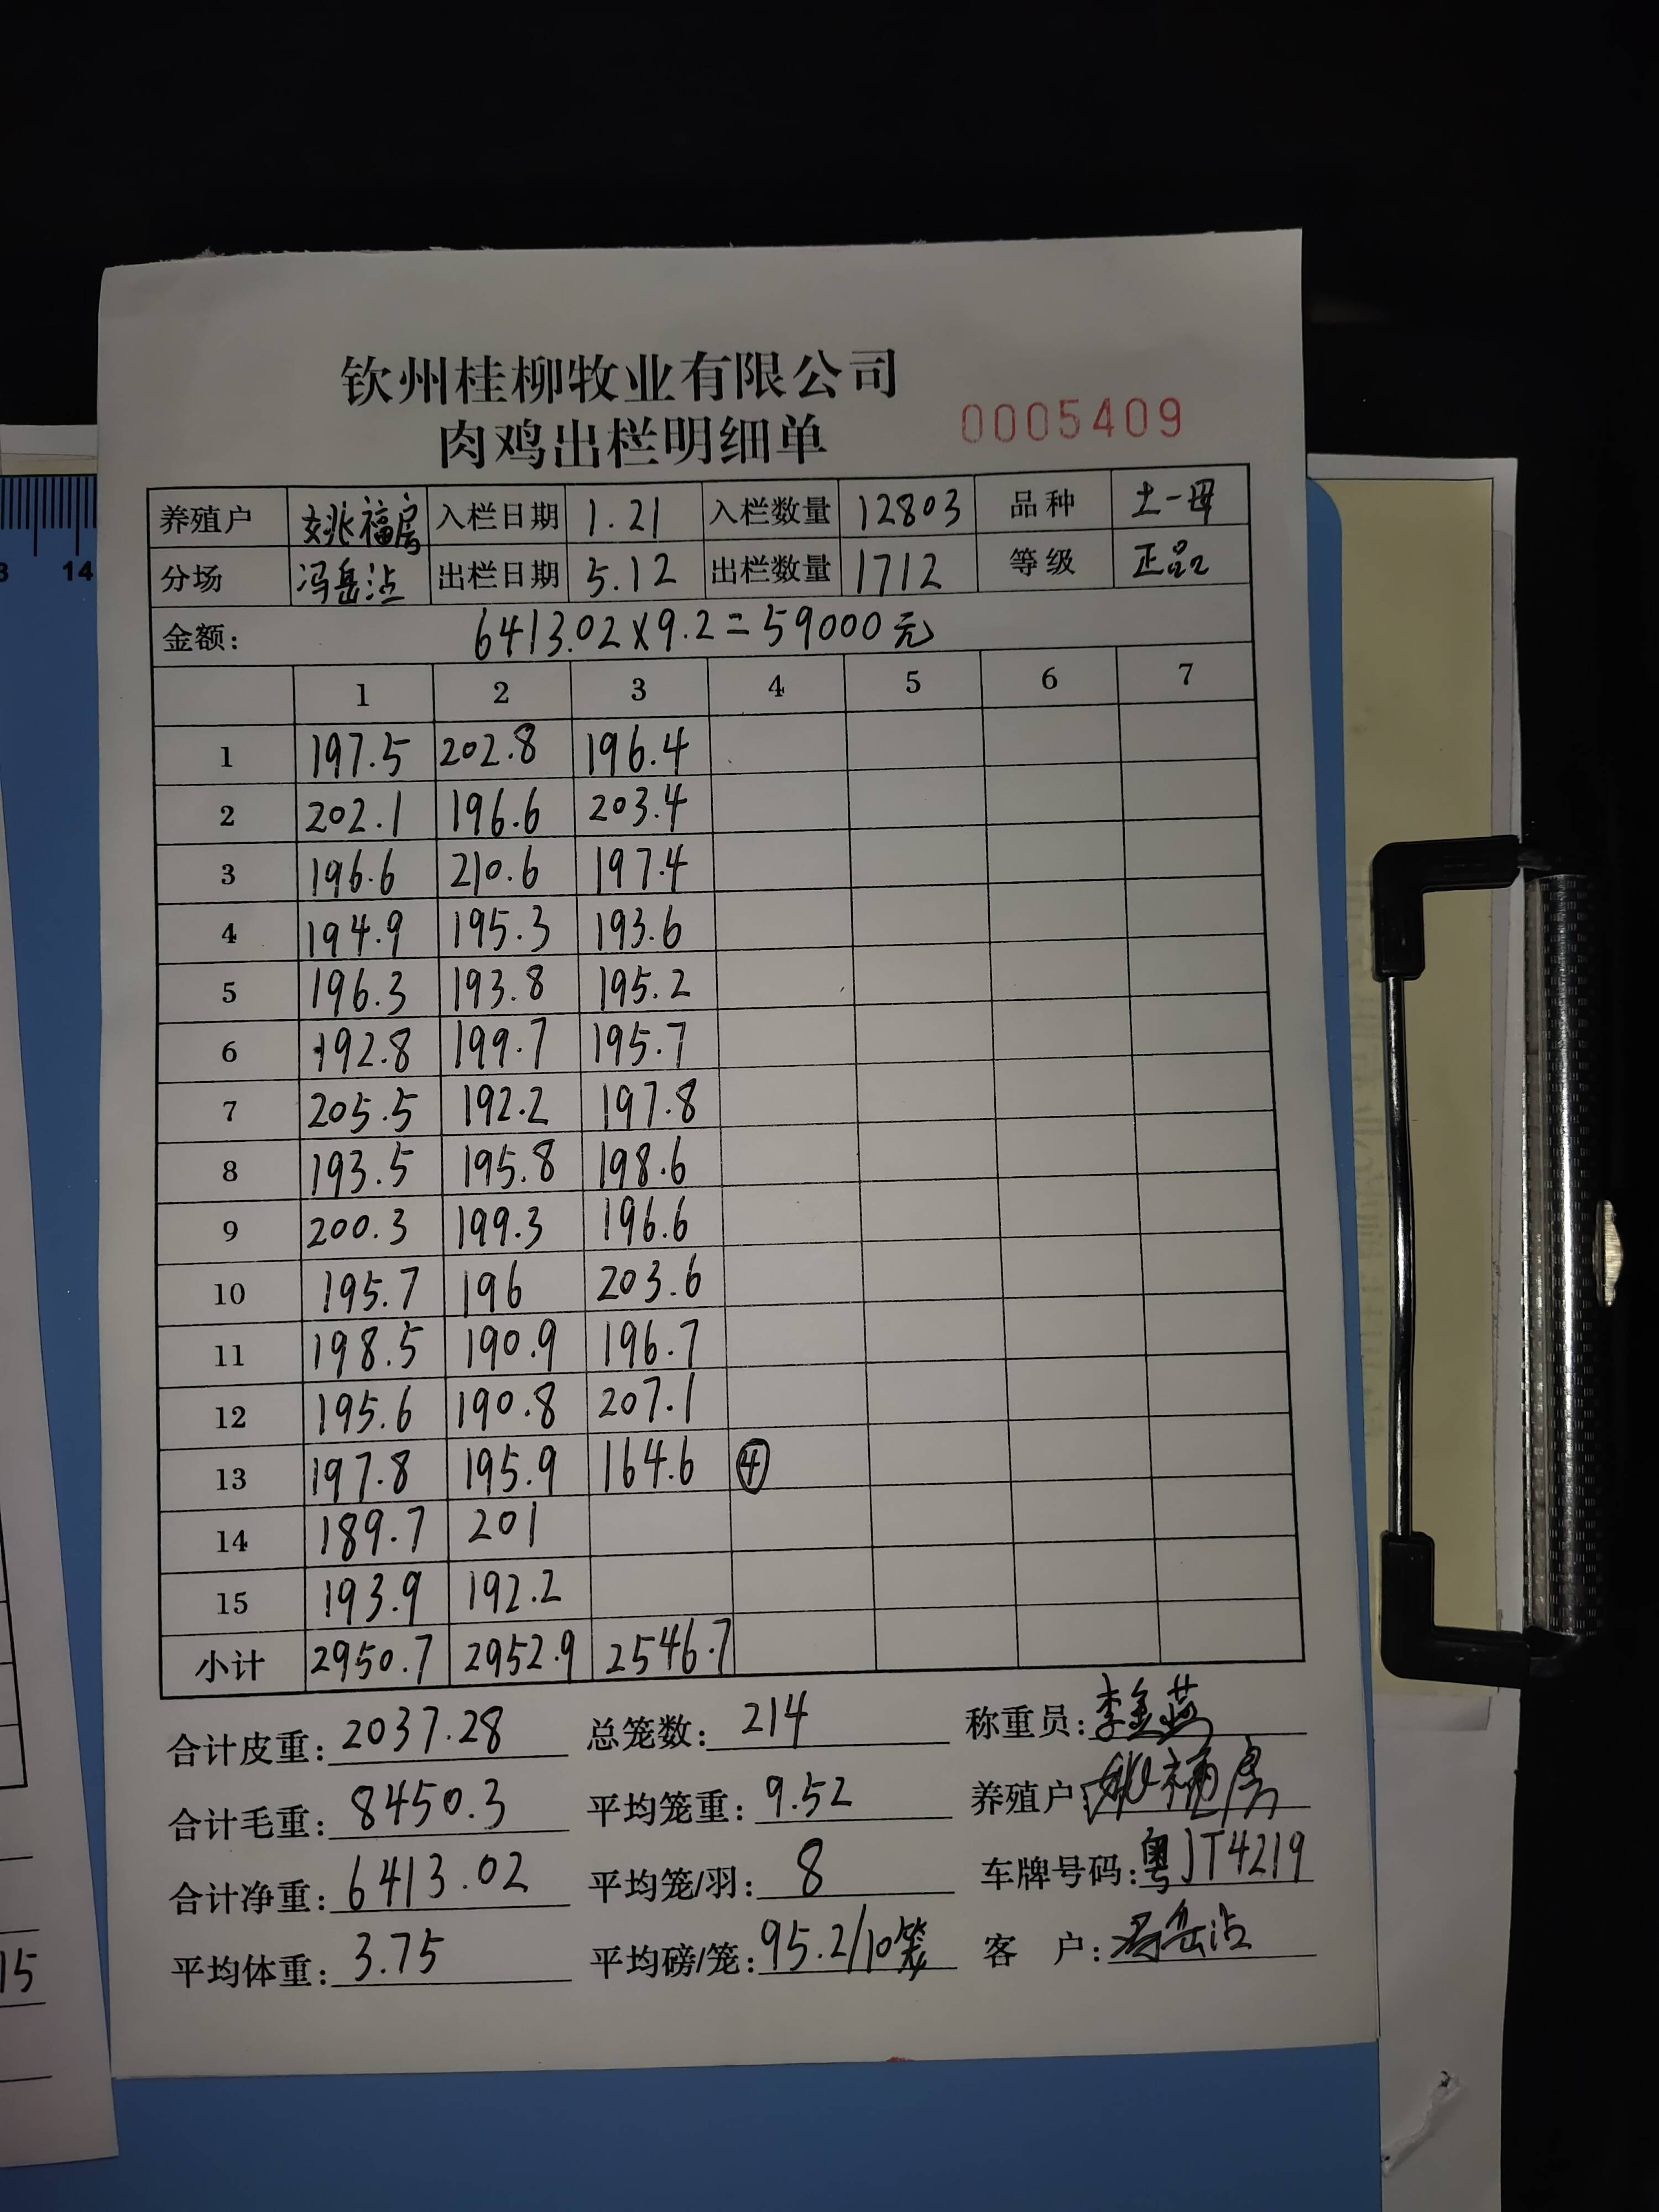 钦州桂柳牧业有限公司
肉鸡出栏明细单 0005409
养殖户 姚福房 入栏日期 1.21 入栏数量 12803 品种 土一母
分场 冯岳沾 出栏日期 5.12 出栏数量 1712 等级 正品
金额: 6413.02×9.2=59000元
1 2 3 4 5 6 7
1 197.5 202.8 196.4
2 202.1 196.6 203.4
3 196.6 210.6 197.4
4 194.9 195.3 193.6
5 196.3 193.8 195.2
6 192.8 199.7 195.7
7 205.5 192.2 197.8
8 193.5 195.8 198.6
9 200.3 199.3 196.6
10 195.7 196 203.6
11 198.5 190.9 196.7
12 195.6 190.8 207.1
13 197.8 195.9 164.6 ④
14 189.7 201
15 193.9 192.2
小计 2950.7 2952.9 2546.7
合计皮重: 2037.28 总笼数: 214 称重员: 李金燕
合计毛重: 8450.3 平均笼重: 9.52 养殖户: 姚福房
合计净重: 6413.02 平均笼/羽: 8 车牌号码: 粤JT4219
平均体重: 3.75 平均磅/笼: 95.2/10笼 客户: 冯岳沾
14
15